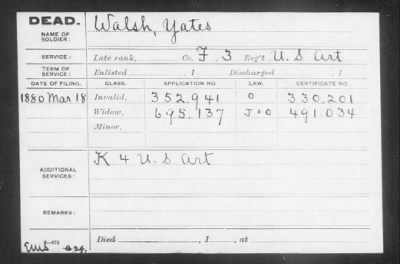 DEAD.
NAME OF SOLDIER: Walsh, Yates
SERVICE: Late rank, Co. F. 3 Reg't U.S Art
TERM OF SERVICE: Enlisted , 1 Discharged , 1
DATE OF FILING. CLASS. APPLICATION NO. LAW. CERTIFICATE NO.
1880 Mar 18 Invalid, 352.941 O 330.201
Widow, 695.137 J+O 491.034
Minor,
ADDITIONAL SERVICES: K 4 U.S Art
REMARKS:
Died , 1 , at